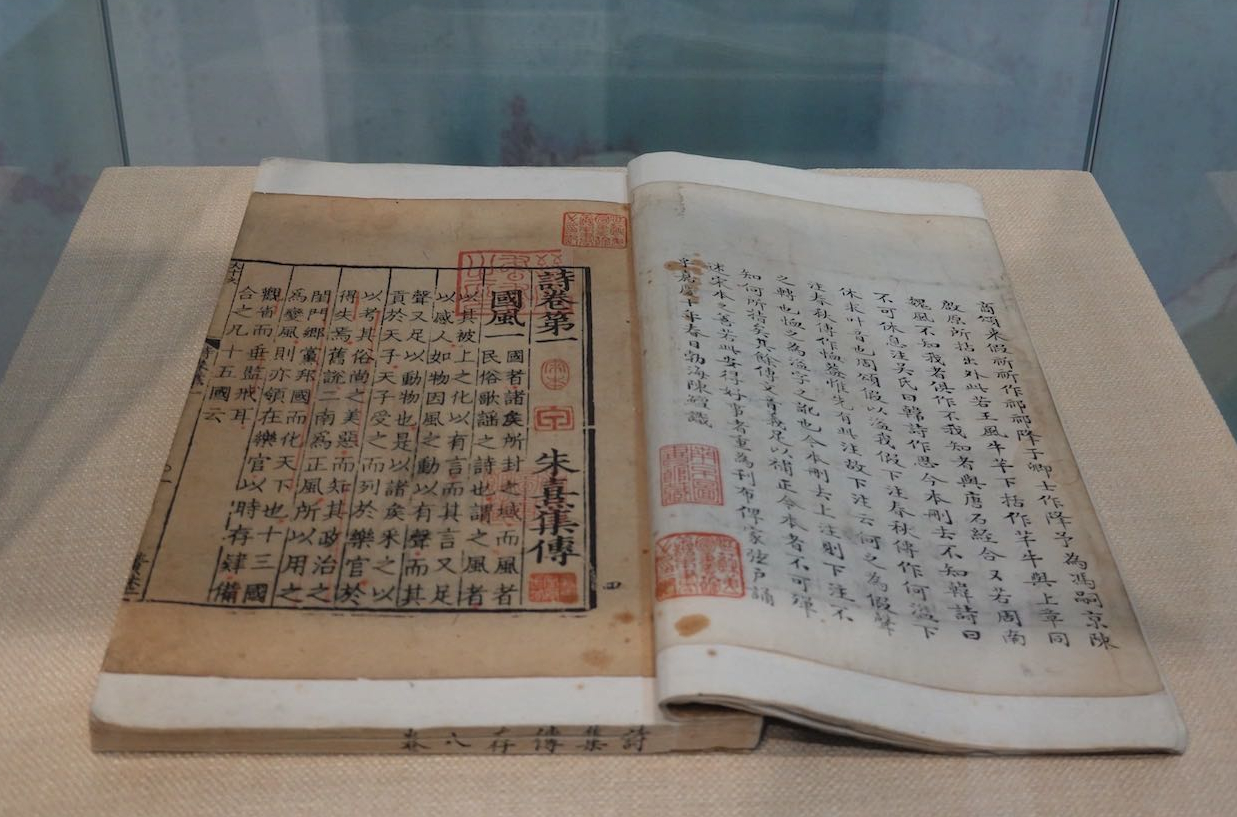 商頌來假祈祈作祁祁降予卿士作降予為馮嗣京陳
啟原所拈出外此若王風牛羊下括作羊牛與上章同
魏風不知我者俱作不我知者與唐石經合又若周南
不可休息注吳氏曰韓詩作思今本刪去不知韓詩曰
休求叶音也周頌假以溢我假下注春秋傳作何溢下
注春秋傳作恤蓋惟先有此注故下注云何之為假聲
之轉也恤之為溢字之訛也今本刪去上注則下注不
知何所指矣其餘傳文音義足以補正今本者不可殫
述宋本之善若此安得好事者重為刊布俾家弦戶誦
乎嘉慶十年春日勃海陳鱣識
四
詩卷第一 宋本 朱熹集傳
國風一 國者諸矦所封之域而風者
民俗歌謠之詩也謂之風者
以其被上之化以有言而其言又足
以感人如物因風之動以有聲而其
聲又足以動物也是以諸矦采之以
貢於天子天子受之而列於樂官於
以考其俗尚之美惡而知其政治之
得失焉舊說二南為正風所以用之
閨門鄉黨邦國而化天下也十三國
為變風則亦領在樂官以時存肄備
觀省而垂監戒耳
合之凡十五國云